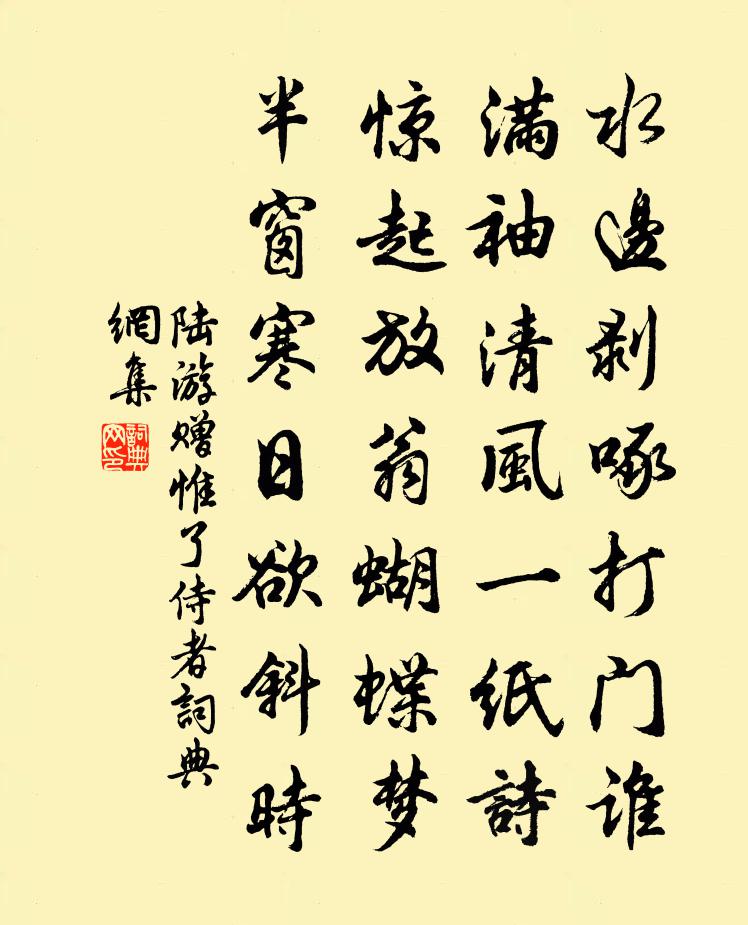 水邊剥啄打门谁
满袖清風一紙詩
惊起放翁蝴蝶梦
半窗寒日欲斜時
陆游赠惟了侍者詞典
網集
詞典网印